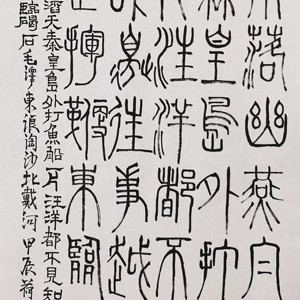 落幽燕白
秦皇島外打
汪洋都不
邊往事越
揮鞭東臨
滔天秦皇島外打魚船一片汪洋都不見知
臨碣石毛澤東浪淘沙北戴河甲辰荷